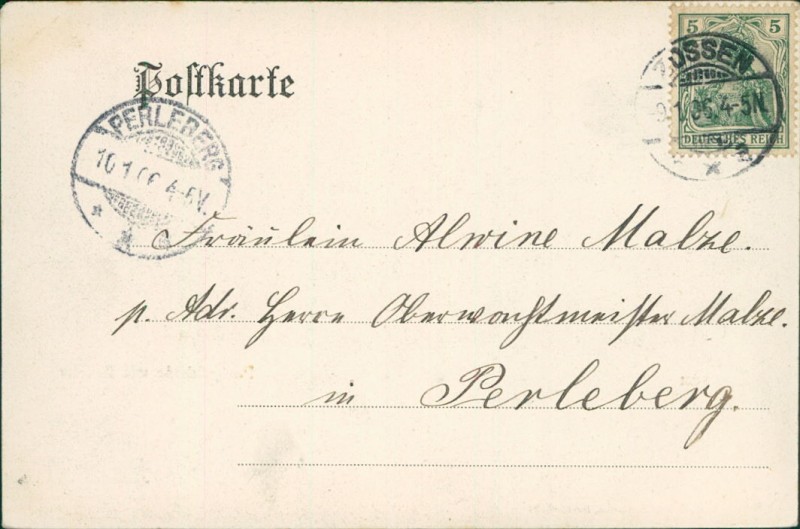 5 5
DEUTSCHES REICH
ZOSSEN
9.1.06.4-5N.
Postkarte
PERLEBERG
10.1.06.4-5V.
Fräulein Alwine Malze.
p. Adr. Herrn Oberwachtmeister Malze.
in Perleberg.